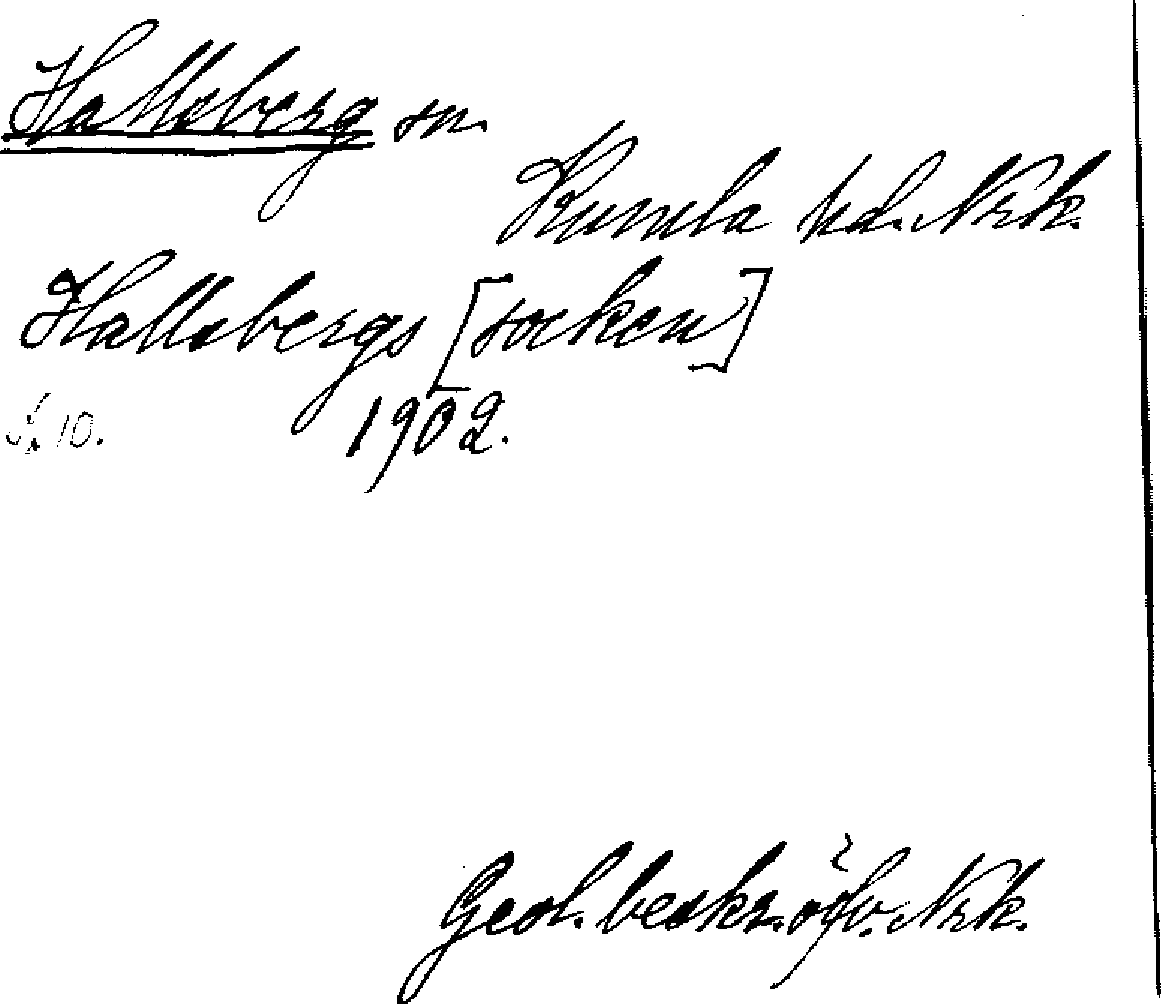 Hallsberg sn.
Kumla hd. Nrk.
Hallsbergs [socken]
S. 10. 1902.
Geol. beskr. öfv. Nrk.